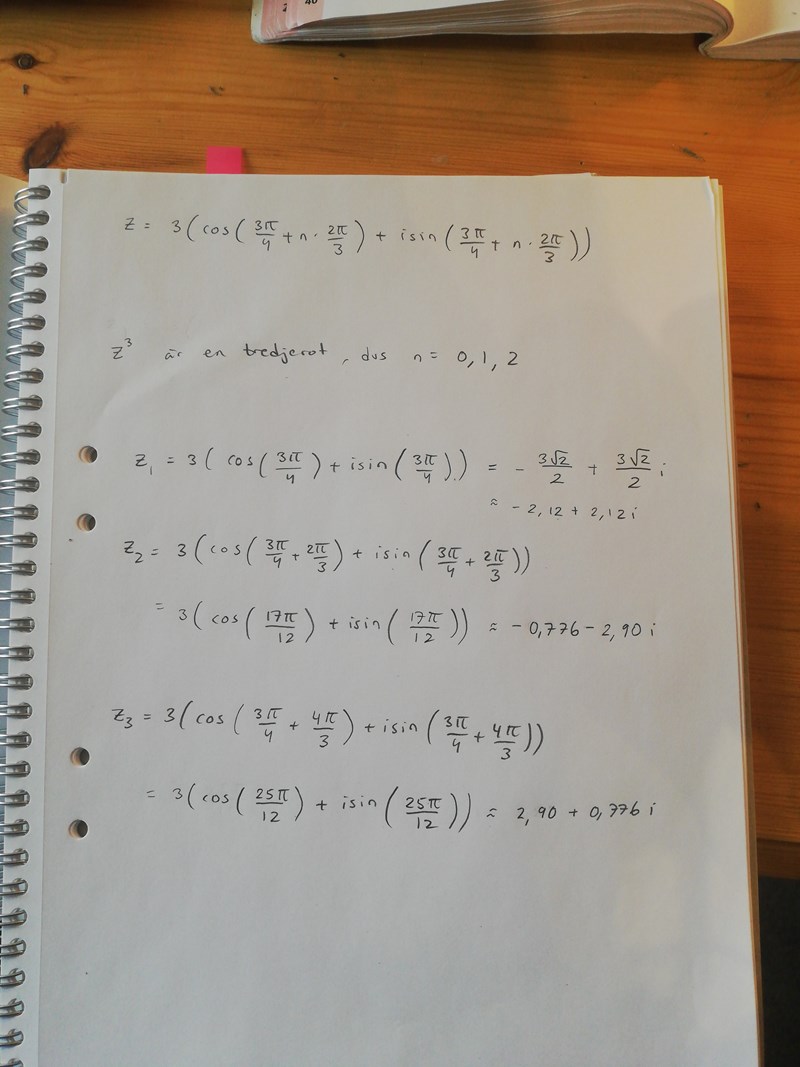 40
z = 3(cos(3π/4 + n · 2π/3) + isin(3π/4 + n · 2π/3))
z³ är en tredjerot, dvs n = 0, 1, 2
z₁ = 3(cos(3π/4) + isin(3π/4)) = - 3√2/2 + 3√2/2 i
≈ - 2,12 + 2,12i
z₂ = 3(cos(3π/4 + 2π/3) + isin(3π/4 + 2π/3))
= 3(cos(17π/12) + isin(17π/12)) ≈ - 0,776 - 2,90 i
z₃ = 3(cos(3π/4 + 4π/3) + isin(3π/4 + 4π/3))
= 3(cos(25π/12) + isin(25π/12)) ≈ 2,90 + 0,776 i